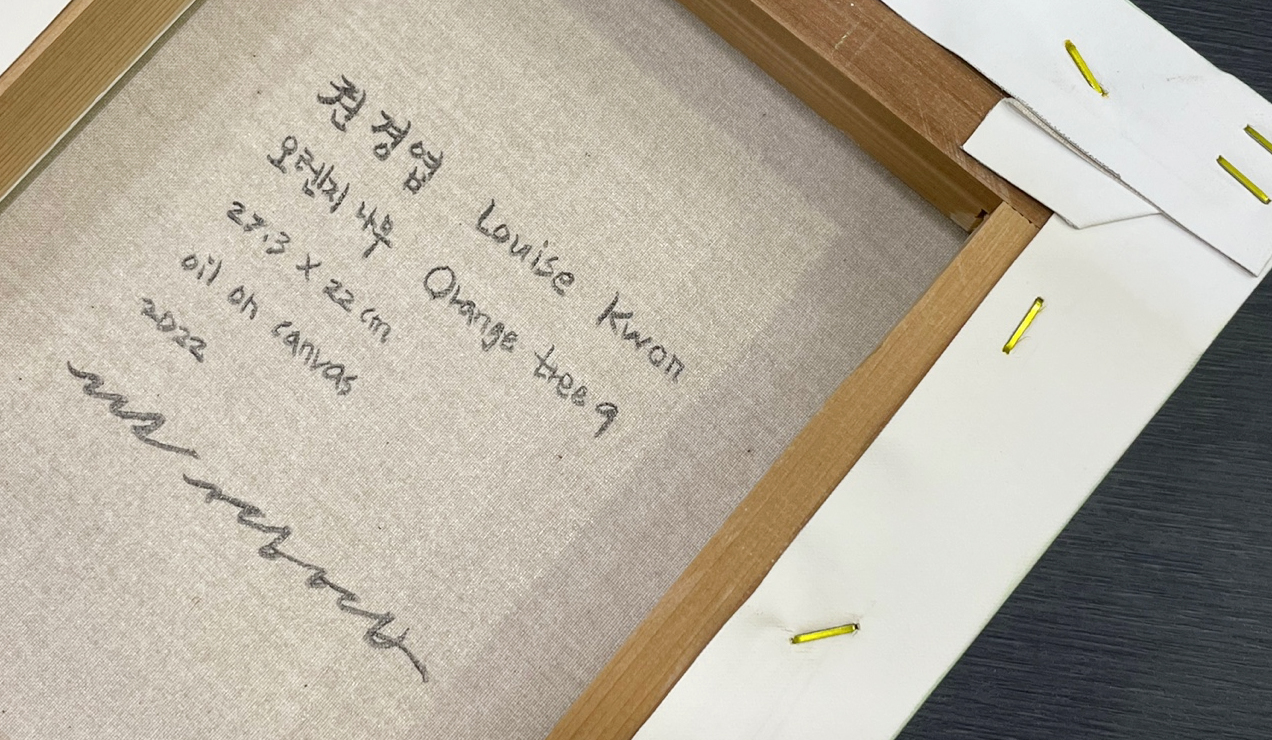 권경엽 Louise Kwon
오렌지 나무 Orange tree 9
27.3 X 22 cm
oil on canvas
2022